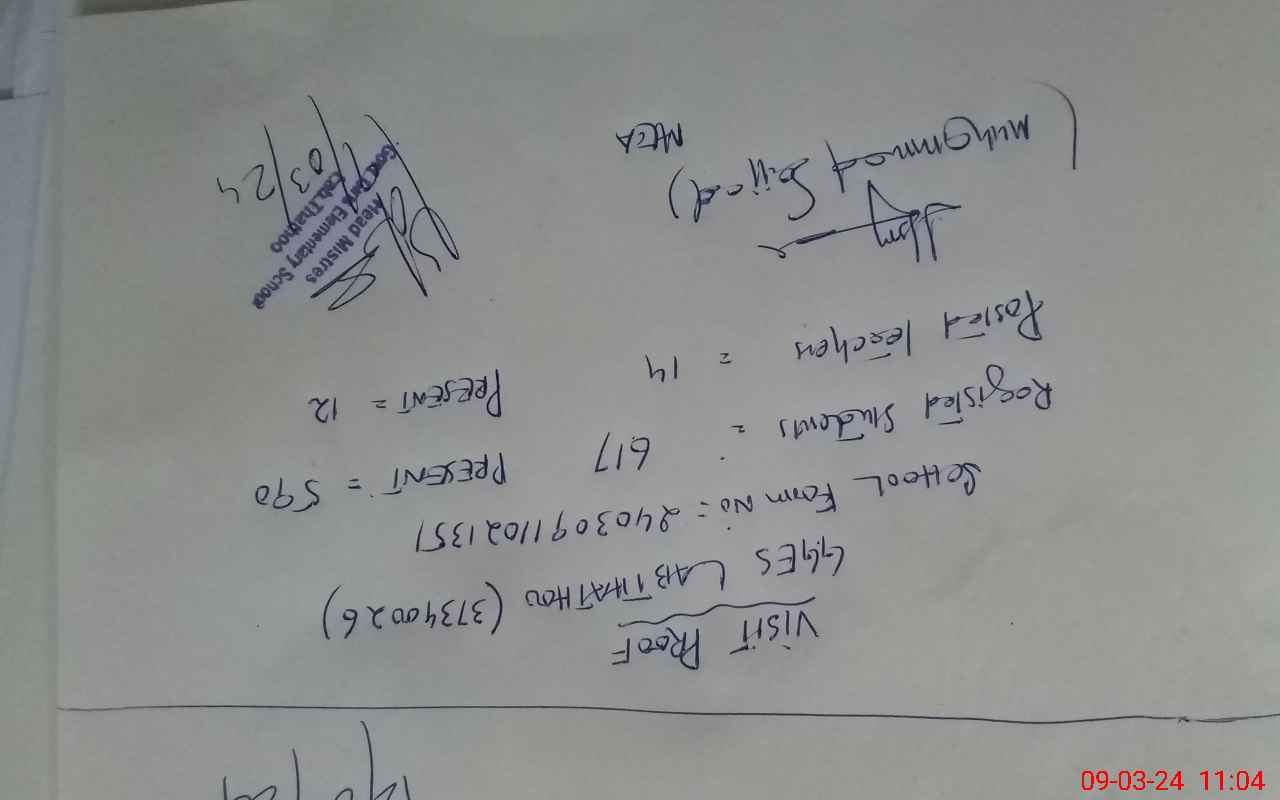 VISIT PROOF
GGES LABTHATHOO (37340026)
SCHOOL Form No = 24030911021351
Registed Students = 617 PRESENT = 590
Posted teachers = 14 PRESENT = 12
(Muhammad Sajjad)
MEA
Head Mistres
Govt Girls Elementary School
Lab Thathoo
/03/24
09-03-24 11:04